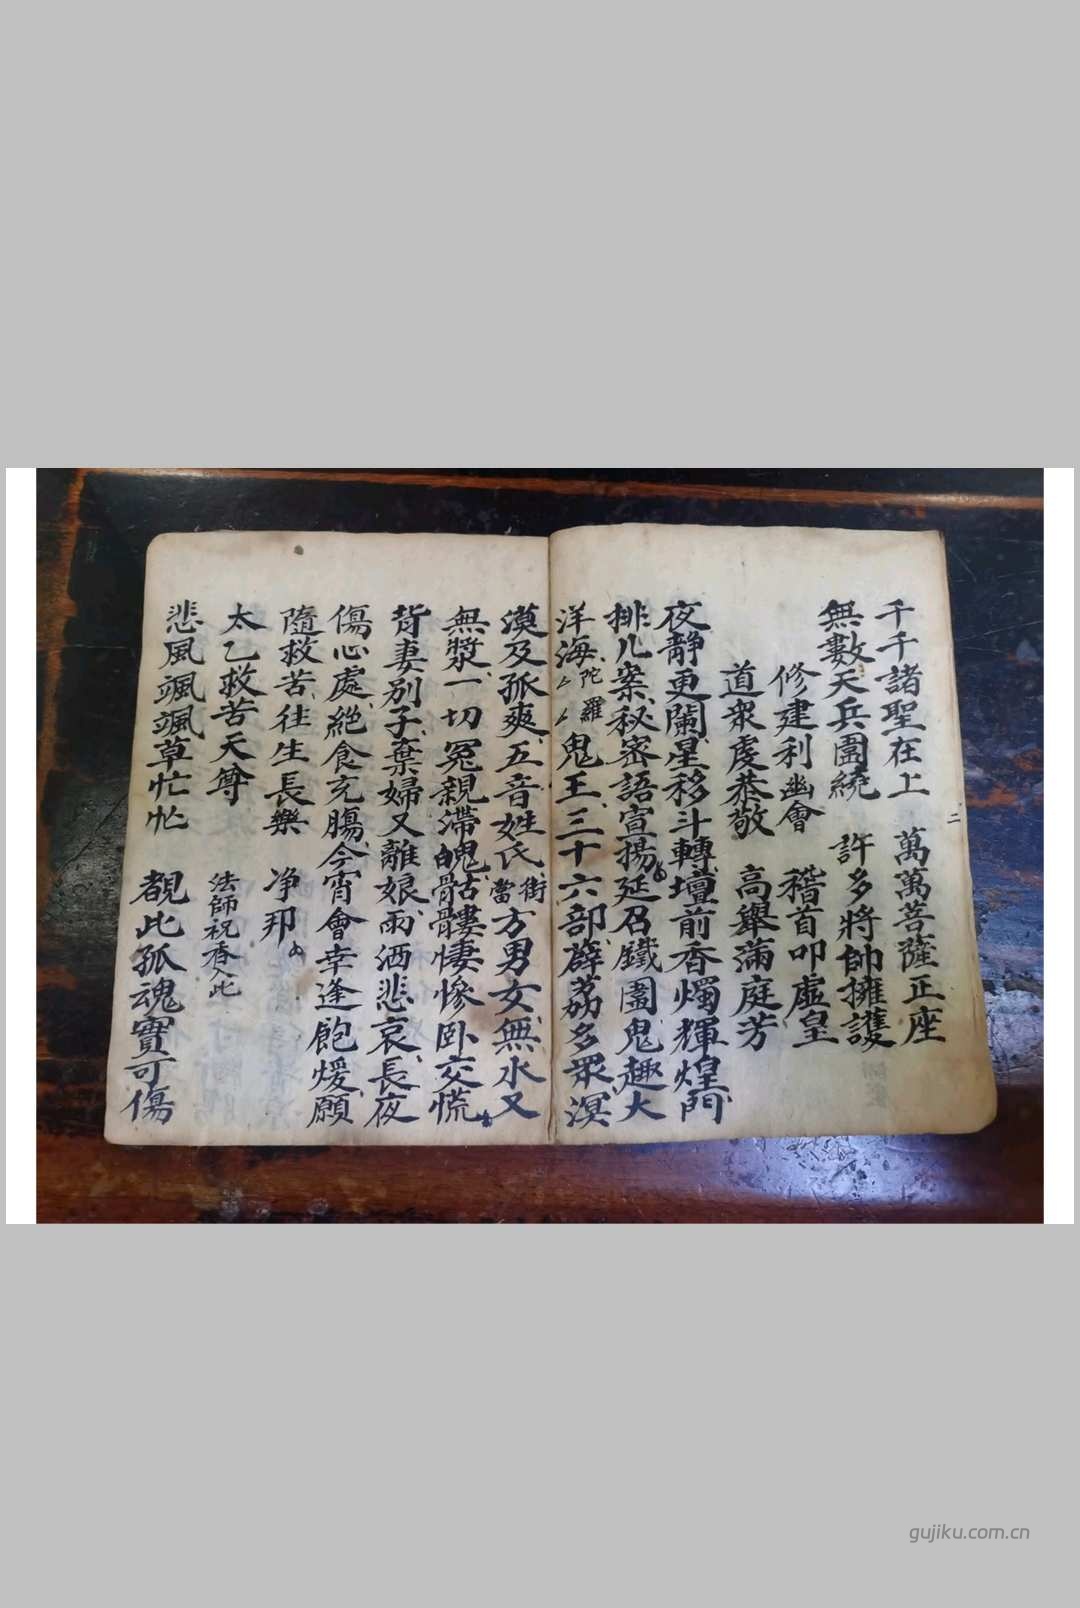 千千諸聖在上　萬萬菩薩正座
無數天兵圍繞　許多將帥擁護
修建利幽會　稽首叩虛皇
道眾虔恭敬　高舉滿庭芳
夜靜更闌星移斗轉壇前香燭輝煌門
排几案秘密語宣揚延召鐵圍鬼趣大
洋海陀羅鬼王三十六部薜荔多眾溟
漠及孤爽五音姓氏當街方男女無水又
無漿一切冤親滯魄骷髏悽慘卧交慌
背妻別子棄婦又離娘雨洒悲哀長夜
傷心處絕食充腸今宵會幸逢飽煖願
隨救苦往生長樂　净邦
太乙救苦天尊　法師祝香入此
悲風颯颯草忙忙　覩此孤魂實可傷
二
gujiku.com.cn